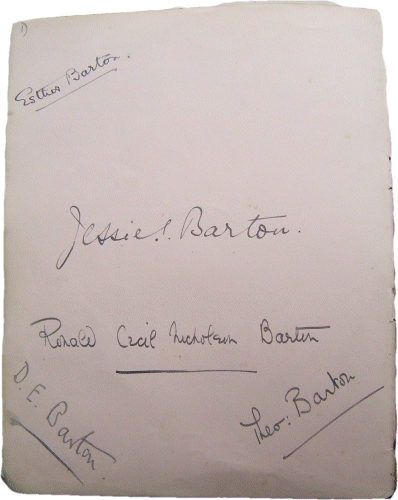 1)
Esther Barton.
Jessie. S. Barton.
Ronald Cecil Nicholson Barton
D. E. Barton
Theo: Barton